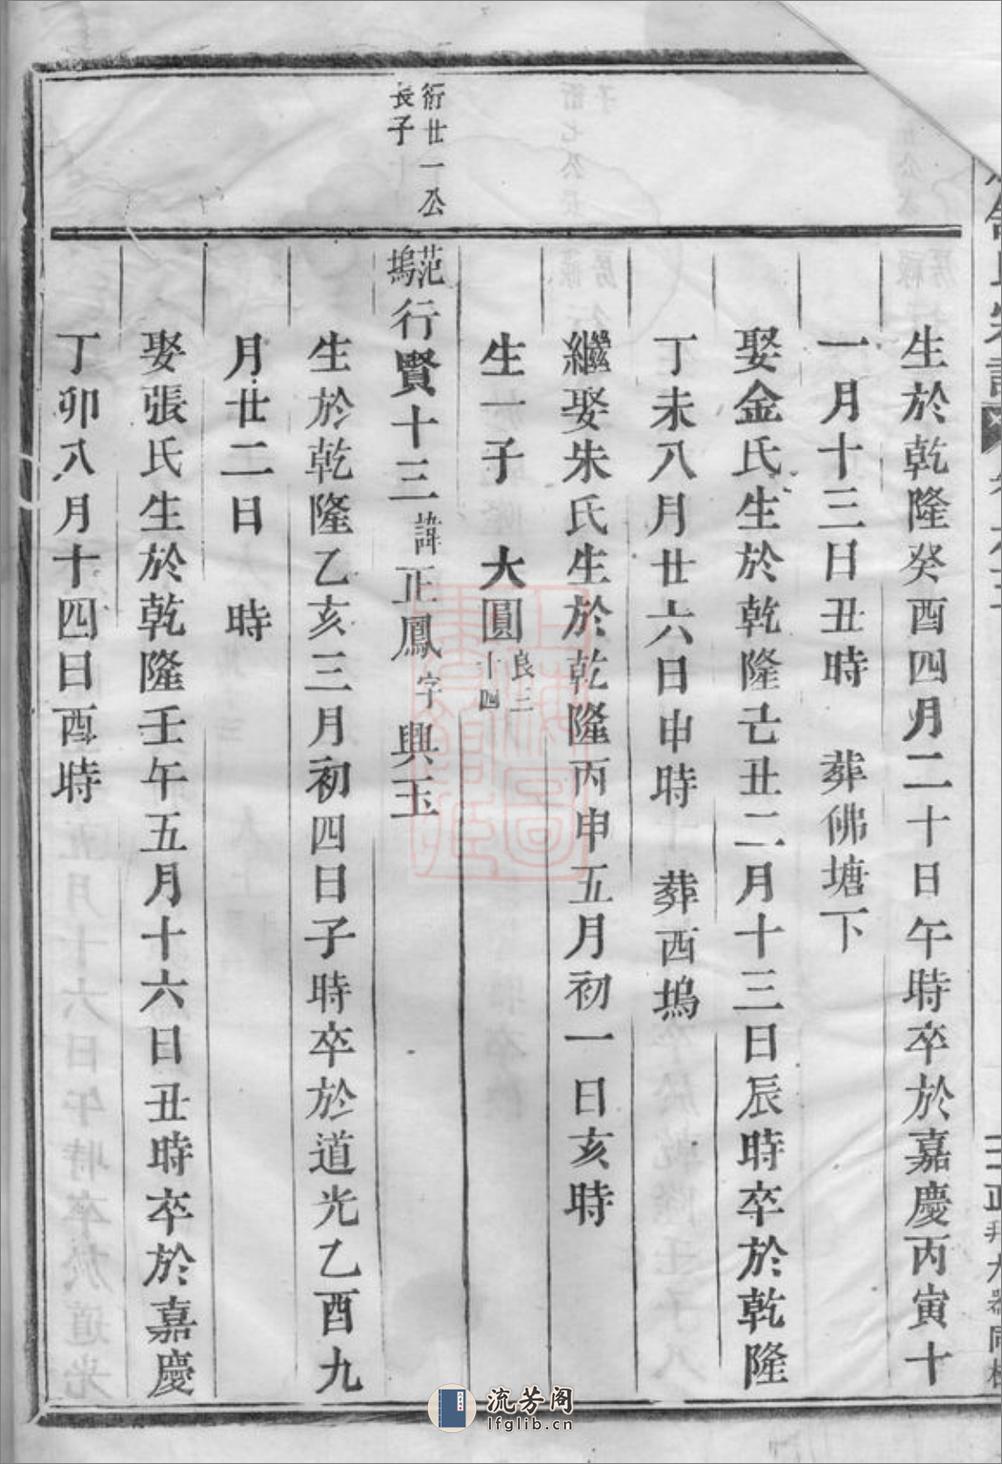 生於乾隆癸酉四月二十日午時卒於嘉慶丙寅十
一月十三日丑時　葬佛塘下
娶金氏生於乾隆己丑二月十三日辰時卒於乾隆
丁未八月廿六日申時　葬西塢
繼娶朱氏生於乾隆丙申五月初一日亥時
生一子　大圓 良三十四
衍廿一公長子
范塢行賢十三諱正鳳字興玉
生於乾隆乙亥三月初四日子時卒於道光乙酉九
月廿二日　時
娶張氏生於乾隆壬午五月十六日丑時卒於嘉慶
丁卯八月十四日酉時
流芳阁
lfglib.cn